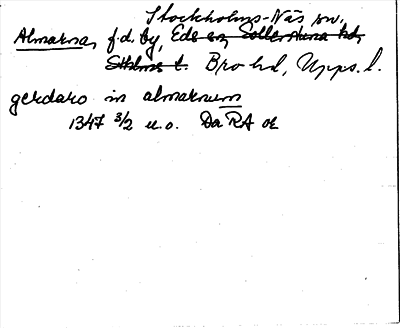 Stockholms-Näs sn,
Almarna, f.d. by, Eds sn, Sollentuna hd,
Sthlms l. Bro hd, Upps. l.
gerdaro in almarnum
1347 3/2 u.o. Da RA or